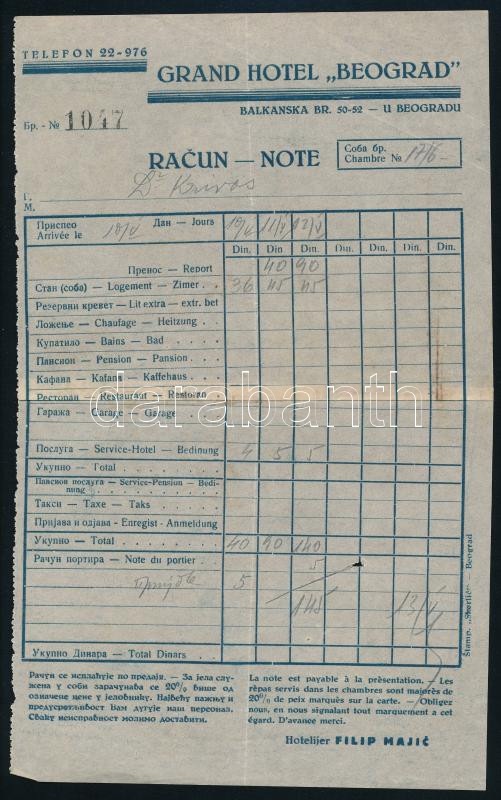 TELEFON 22-976
GRAND HOTEL „BEOGRAD"
BALKANSKA BR. 50-52 — U BEOGRADU
Бр. - № 1047
RAČUN — NOTE
Соба бр.
Chambre № 17/6-
Г.
М.
Dr Krivos
Приспео Дан — Jours
Arrivée le 10/V 10/V 11/V 12/V
Din. Din Din. Din. Din. Din. Din.
Пренос — Report 40 90
Стан (соба) — Logement — Zimer . . 36 45 45
Резервни кревет — Lit extra — extr. bet
Ложење — Chaufage — Heitzung . . .
Купатило — Bains — Bad . . . .
Пансион — Pension — Pansion . . .
Кафана — Kafana — Kaffehaus . . .
Ресторан — Restaurant — Restoran .
Гаража — Garage — Garage . . .
Послуга — Service-Hotel — Bedinung 4 5 5
Укупно — Total . . . . .
Пансион послуга — Service-Pension — Bedi-
nung
Такси — Taxe — Taks . . . .
Пријава и одјава - Enregist - Anmeldung
Укупно — Total . . . . 40 90 140
Рачун портира — Note du portier . 5
5
145 13/V
Укупно Динара — Total Dinars . .
Рачун се исплаћује по предаји. — За јела слу-
жена у соби зарачунава се 20% више од
означене цене у јеловнику. Највећу пажњу и
предусретљивост Вам дугује наш персонал.
Сваку неисправност молимо доставити.
La note est payable à la présentation. — Les
rèpas servis dans les chambres sont majorés de
20% de peix marqués sur la carte. — Obligez
nous, en nous signalant tout marquement a cet
égard. D'avance merci.
Hotelijer FILIP MAJIĆ
Štamp. „Skerlić" — Beograd
darabanth